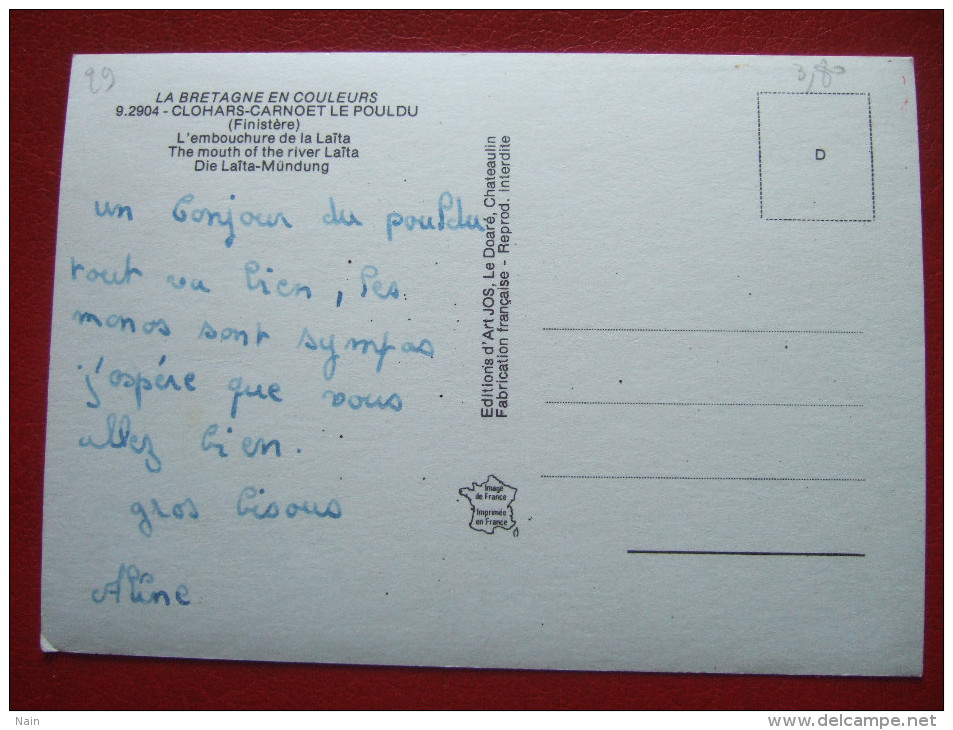 29
3,80
LA BRETAGNE EN COULEURS
9.2904 - CLOHARS-CARNOET LE POULDU
(Finistère)
L'embouchure de la Laïta
The mouth of the river Laïta
Die Laïta-Mündung
un bonjour du pouldu
tout va bien, les
monos sont sympas
j'espère que vous
allez bien.
gros bisous
Aline
Editions d'Art JOS, Le Doaré, Chateaulin
Fabrication française - Reprod. interdite
D
Image
de France
Imprimée
en France
Nain
http://www.delcampe.net